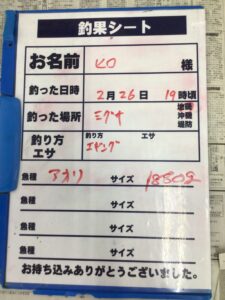 釣果シート
お名前 ヒロ 様
釣った日時 2月26日 19時頃
釣った場所 ミグサ 地磯 沖磯 堤防
釣り方 エサ 釣り方 エギング エサ
魚種 アオリ サイズ 1850g
魚種 サイズ
魚種 サイズ
魚種 サイズ
お持ち込みありがとうございました。